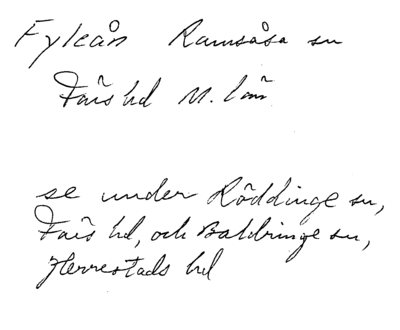 Fyleån Ramsåsa sn
Färs hd M. län
se under Röddinge sn,
Färs hd, och Baldringe sn,
Herrestads hd